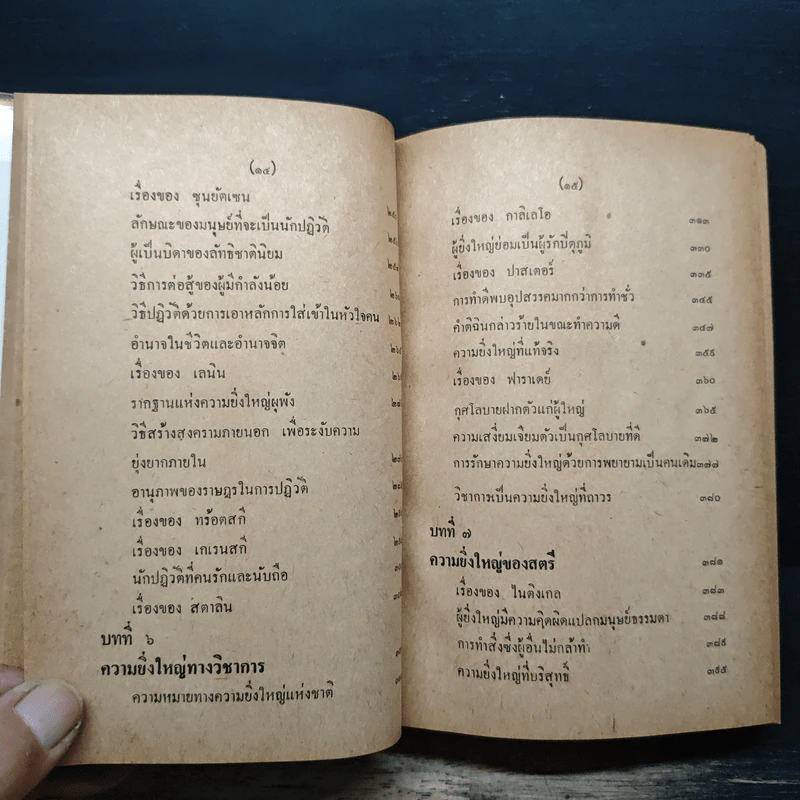 (๑๔)
เรื่องของ ซุนยัตเซน
ลักษณะของมนุษย์ที่จะเป็นนักปฏิวัติ
ผู้เป็นบิดาของลัทธิชาตินิยม
วิธีการต่อสู้ของผู้มีกำลังน้อย
วิธีปฏิวัติด้วยการเอาหลักการใส่เข้าในหัวใจคน
อำนาจในชีวิตและอำนาจจิต
เรื่องของ เลนิน
รากฐานแห่งความยิ่งใหญ่ผุพัง
วิธีสร้างสงครามภายนอก เพื่อระงับความ
ยุ่งยากภายใน
อานุภาพของราษฎรในการปฏิวัติ
เรื่องของ ทร๊อตสกี้
เรื่องของ เกเรนสกี้
นักปฏิวัติที่คนรักและนับถือ
เรื่องของ สตาลิน
บทที่ ๖
ความยิ่งใหญ่ทางวิชาการ
ความหมายทางความยิ่งใหญ่แห่งชาติ
(๑๕)
เรื่องของ กาลิเลโอ ๓๑๓
ผู้ยิ่งใหญ่ย่อมเป็นผู้รักปิตุภูมิ ๓๓๐
เรื่องของ ปาสเตอร์ ๓๓๕
การทำดีพบอุปสรรคมากกว่าการทำชั่ว ๓๔๕
คำติฉินกล่าวร้ายในขณะทำความดี ๓๔๗
ความยิ่งใหญ่ที่แท้จริง ๓๕๕
เรื่องของ ฟาราเดย์ ๓๖๐
กุศโลบายฝากตัวแก่ผู้ใหญ่ ๓๖๕
ความเสงี่ยมเจียมตัวเป็นกุศโลบายที่ดี ๓๗๒
การรักษาความยิ่งใหญ่ด้วยการพยายามเป็นคนเดิม ๓๗๗
วิชาการเป็นความยิ่งใหญ่ที่ถาวร ๓๘๐
บทที่ ๗
ความยิ่งใหญ่ของสตรี ๓๘๑
เรื่องของ ไนติงเกล ๓๘๓
ผู้ยิ่งใหญ่มีความคิดผิดแปลกมนุษย์ธรรมดา ๓๘๘
การทำสิ่งซึ่งผู้อื่นไม่กล้าทำ ๓๘๙
ความยิ่งใหญ่ที่บริสุทธิ์ ๓๙๕